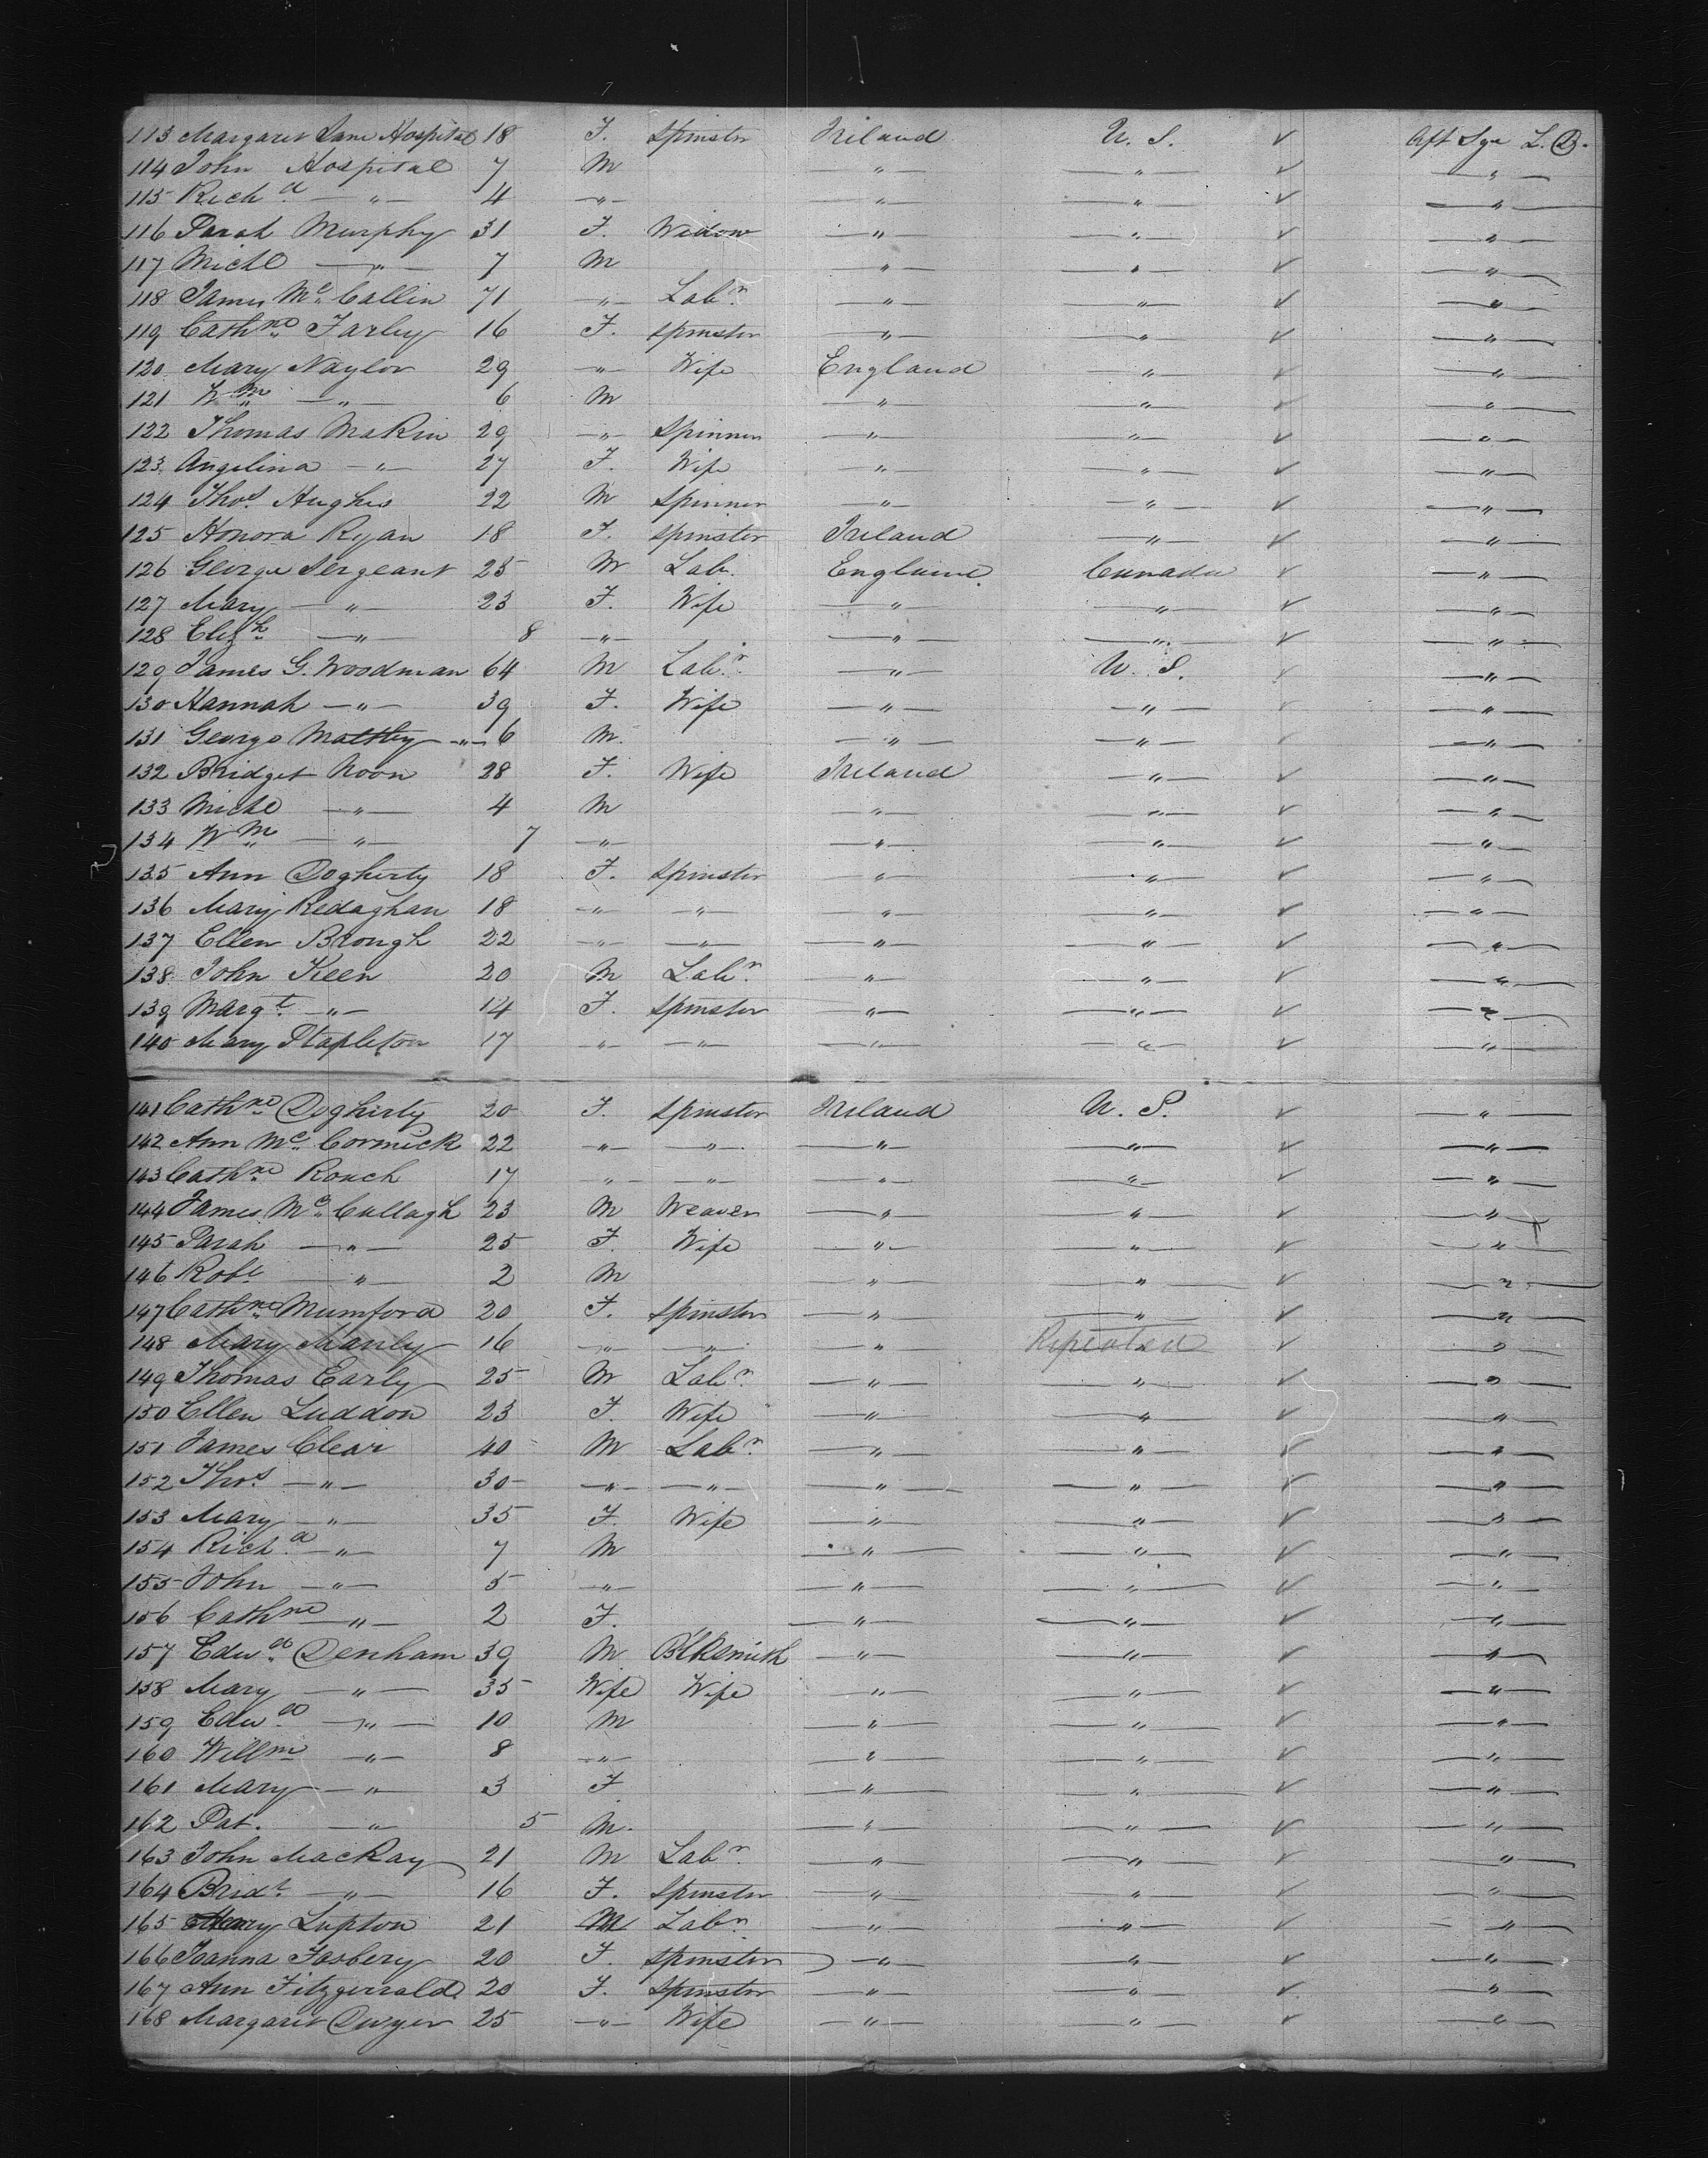 113 Margaret Jane Hospital 18 F. Spinster Ireland U. S. ✓ Aft Sge L. D.
114 John Hospital 7 M — " — — " — ✓ — " —
115 Rich.d — " — 4 — " — — " — — " — ✓ — " —
116 Sarah Murphy 31 F. Widow — " — — " — ✓ — " —
117 Michl — " — 7 M — " — — " — ✓ — " —
118 James Mc. Callin 71 — " — Labr. — " — — " — ✓ — " —
119 Cathne Farley 16 F. Spinster — " — — " — ✓ — " —
120 Mary Naylor 29 — " — Wife England — " — ✓ — " —
121 Wm — " — 6 M — " — — " — ✓ — " —
122 Thomas Makin 29 — " — Spinner — " — — " — ✓ — " —
123 Angelina — " — 27 F. Wife — " — — " — ✓ — " —
124 Thos. Hughes 22 M Spinner — " — — " — ✓ — " —
125 Honora Ryan 18 F. Spinster Ireland — " — ✓ — " —
126 George Sergeant 25 M Lab. England Canada ✓ — " —
127 Mary — " — 23 F. Wife — " — — " — ✓ — " —
128 Elizh — " — 8 — " — — " — — " — ✓ — " —
129 James G. Woodman 64 M Labr. — " — U. S. ✓ — " —
130 Hannah — " — 39 F. Wife — " — — " — ✓ — " —
131 George — " — 6 M. — " — — " — ✓ — " —
132 Bridget Noon 28 F. Wife Ireland — " — ✓ — " —
133 Michl — " — 4 M — " — — " — ✓ — " —
134 Wm — " — 7 — " — — " — — " — ✓ — " —
135 Ann Dogherty 18 F. Spinster — " — — " — ✓ — " —
136 Mary Redaghan 18 — " — — " — — " — — " — ✓ — " —
137 Ellen Brough 22 — " — — " — — " — — " — ✓ — " —
138 John Keen 20 M Labr. — " — — " — ✓ — " —
139 Margt. — " — 14 F. Spinster — " — — " — ✓ — " —
140 Mary Stapleton 17 — " — — " — — " — — " — ✓ — " —
141 Cathne Dogherty 20 F. Spinster Ireland U. S. ✓ — " —
142 Ann Mc. Cormick 22 — " — — " — — " — — " — ✓ — " —
143 Cathne Rouch 17 — " — — " — — " — — " — ✓ — " —
144 James Mc. Cullagh 23 M Weaver — " — — " — ✓ — " —
145 Sarah — " — 25 F. Wife — " — — " — ✓ — " —
146 Robt — " — 2 M — " — — " — ✓ — " —
147 Cathne Mumford 20 F. Spinster — " — — " — ✓ — " —
148 Mary Manly 16 — " — — " — — " — Repeated ✓ — " —
149 Thomas Early 25 M Labr. — " — — " — ✓ — " —
150 Ellen Luddon 23 F. Wife — " — — " — ✓ — " —
151 James Clear 40 M Labr. — " — — " — ✓ — " —
152 Thos. — " — 30 — " — — " — — " — — " — ✓ — " —
153 Mary — " — 35 F. Wife — " — — " — ✓ — " —
154 Rich.d — " — 7 M — " — — " — ✓ — " —
155 John — " — 5 — " — — " — — " — ✓ — " —
156 Cathne — " — 2 F. — " — — " — ✓ — " —
157 Edwd. Denham 39 M Blksmith — " — — " — ✓ — " —
158 Mary — " — 35 Wife Wife — " — — " — ✓ — " —
159 Edwd. — " — 10 M — " — — " — ✓ — " —
160 Willm — " — 8 — " — — " — — " — ✓ — " —
161 Mary — " — 3 F — " — — " — ✓ — " —
162 Pat. — " — 5 M. — " — — " — ✓ — " —
163 John MacKay 21 M Labr. — " — — " — ✓ — " —
164 Bridt — " — 16 F. Spinster — " — — " — ✓ — " —
165 Lupton 21 M Labr. — " — — " — ✓ — " —
166 Joanna Fosbery 20 F. Spinster — " — — " — ✓ — " —
167 Ann Fitzgerrald 20 F. Spinster — " — — " — ✓ — " —
168 Margaret Dwyer 25 — " — Wife — " — — " — ✓ — " —